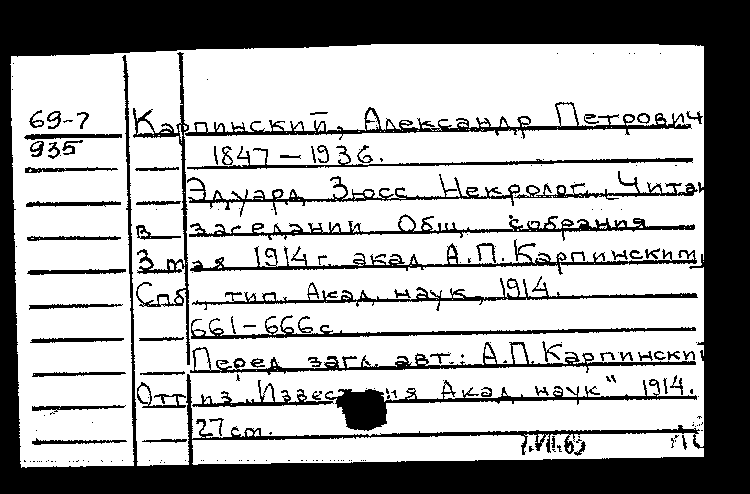 69-7 Карпинский, Александр Петрович
935 1847-1936.
Эдуард Зюсс. Некролог. Читан
в заседании Общ. собрания
3 мая 1914 г. акад. А.П. Карпинским,
Спб., тип. Акад. наук, 1914.
661-666 с.
Перед загл. авт.: А.П. Карпинский
Отт. из "Известия Акад. наук". 1914.
27 см.
7.VII.69